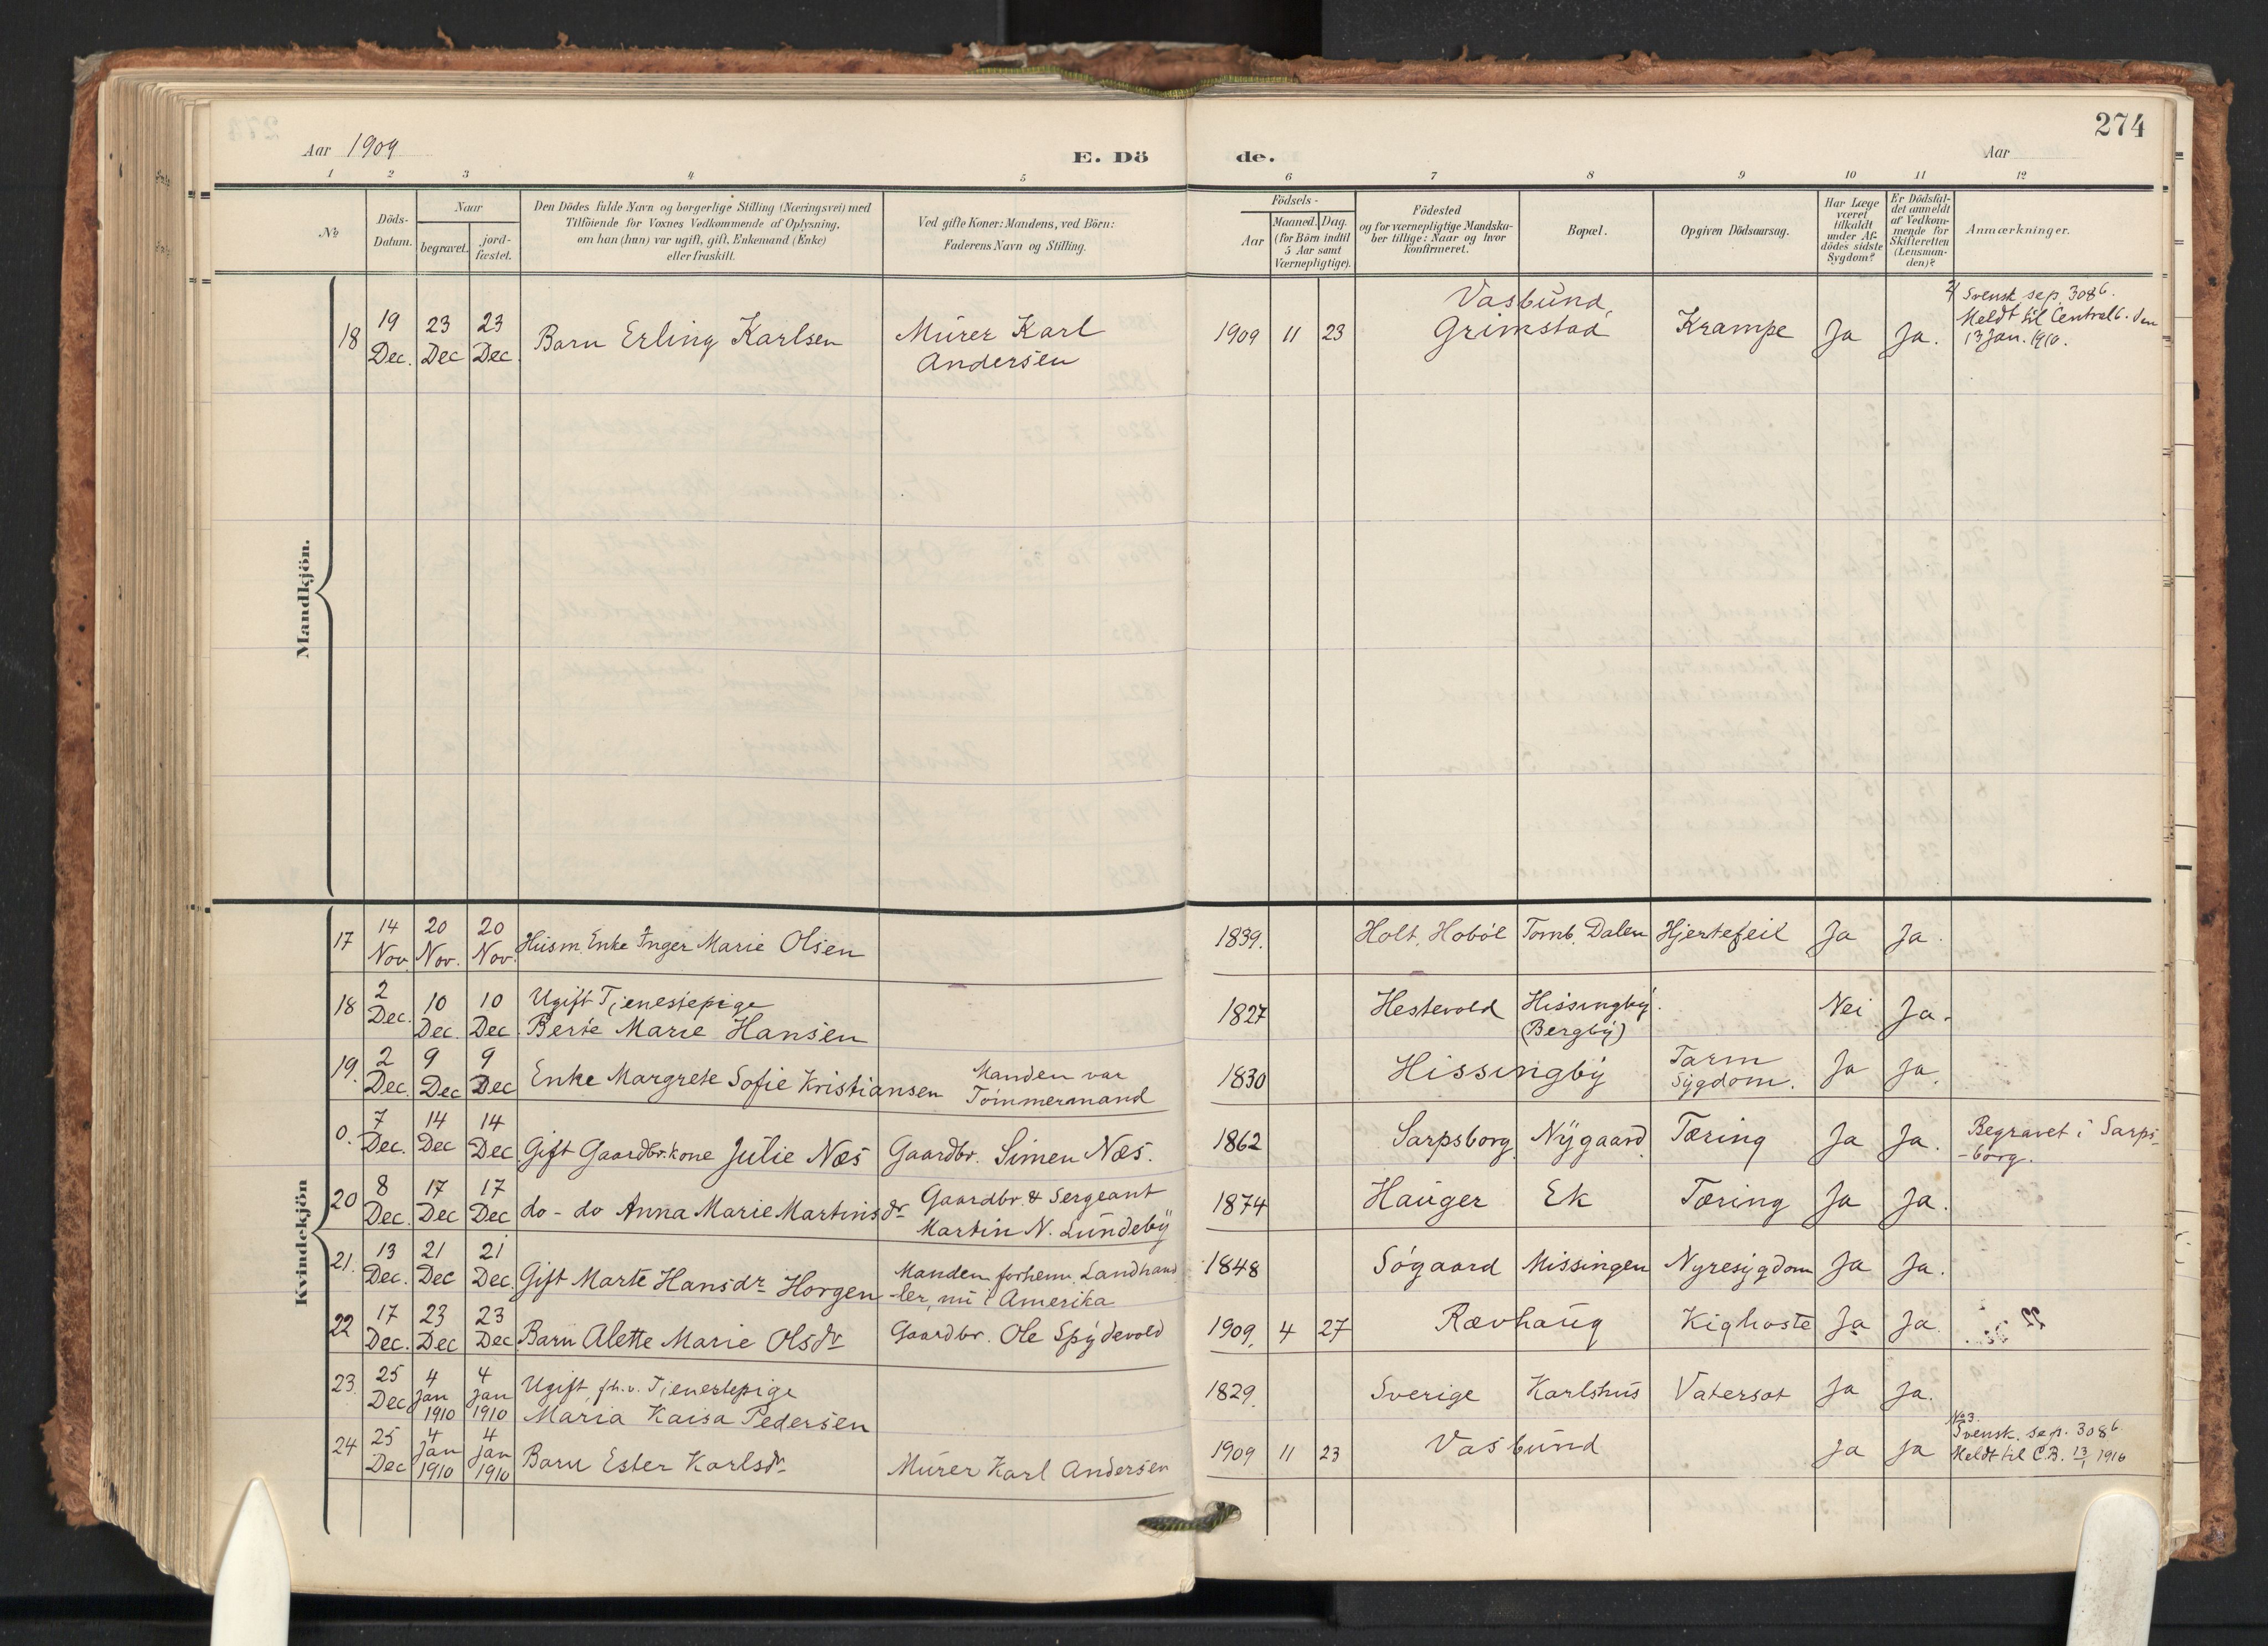 274
Aar 1909
E. Dö
de.
Aar
1 2 3 4 5 6 7 8 9 10 11 12
No
Döds-
Datum.
Naar
begravet.
jord-
fæstet.
Den Dödes fulde Navn og borgerlige Stilling (Næringsvei) med
Tilföiende for Voxnes Vedkommende af Oplysning,
om han (hun) var ugift, gift, Enkemand (Enke)
eller fraskilt.
Ved gifte Koner: Mandens, ved Börn:
Faderens Navn og Stilling.
Födsels-
Aar
Maaned.
Dag.
(for Börn indtil
5 Aar samt
Værnepligtige).
Födested
og for værnepligtige Mandska-
ber tillige: Naar og hvor
konfirmeret.
Bopæl.
Opgiven Dödsaarsag.
Har Læge
været
tilkaldt
under Af-
dödes sidste
Sygdom?
Er Dödsfal-
det anmeldt
af Vedkom-
mende for
Skifteretten
(Lensman-
den)?
Anmærkninger.
Mandkjön.
18 19 Dec. 23 Dec 23 Dec. Barn Erling Karlsen
Murer Karl
Andersen
1909 11 23
Vasbund,
Grimstad
Krampe Ja Ja.
Svensk sep. 308 b.
Meldt til Centralb. den
13 Jan. 1910.
Kvindekjön
17 14 Nov 20 Nov. 20 Nov. Husm. Enke Inger Marie Olsen
1839. Holt, Hobøl Tomb. Dalen Hjertefeil Ja Ja.
18 2 Dec. 10 Dec. 10 Dec.
Ugift Tjenestepige
Berte Marie Hansen
1827 Hestevold Hissingby.
(Bergby)
Nei Ja.
19. 2 Dec. 9 Dec 9 Dec Enke Margrete Sofie Kristiansen
Manden var
Tømmermand
1830 Hissingby
Tarm
Sygdom.
Ja Ja.
0. 7 Dec. 14 Dec 14 Dec Gift Gaardbr.kone Julie Næs Gaardbr. Simen Næs.
1862 Sarpsborg Nygaard. Tæring Ja Ja.
Begravet i Sarps-
-borg.
20 8 Dec. 17 Dec 17 Dec do - do Anna Marie Martinsdr
Gaardbr. & Sergeant
Martin N. Lundeby
1874 Hauger Ek Tæring Ja Ja.
21. 13 Dec. 21 Dec 21 Dec. Gift Marte Hansdr Horgen
Manden forhenv. Landhand
-ler, nu i Amerika
1848 Søgaard Missingen Nyresygdom Ja Ja.
22 17 Dec. 23 Dec 23 Dec Barn Alette Marie Olsdr Gaardbr. Ole Spydevold
1909. 4 27 Rævhaug Kighoste Ja Ja.
23. 25 Dec 4 Jan 1910 4 Jan 1910
Ugift, fh.v. Tjenestepige
Maria Kaisa Pedersen
1829. Sverige Karlshus Vatersot Ja Ja.
24 25 Dec 4 Jan 1910 4 Jan 1910 Barn Ester Karlsdr. Murer Karl Andersen
1909 11 23 Vasbund Ja Ja
No 3.
Svensk. sep. 308 b
Meldt til C.B. 13/1 1910